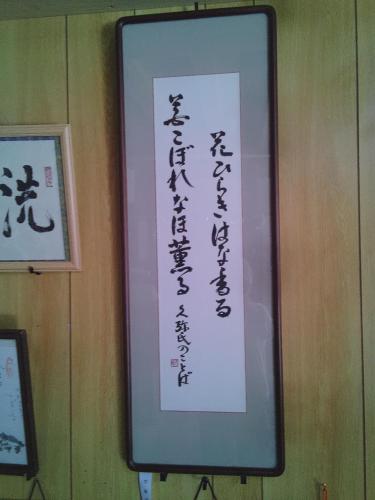 花ひらきはな香る
花こぼれなほ薫る
久弥氏のことば